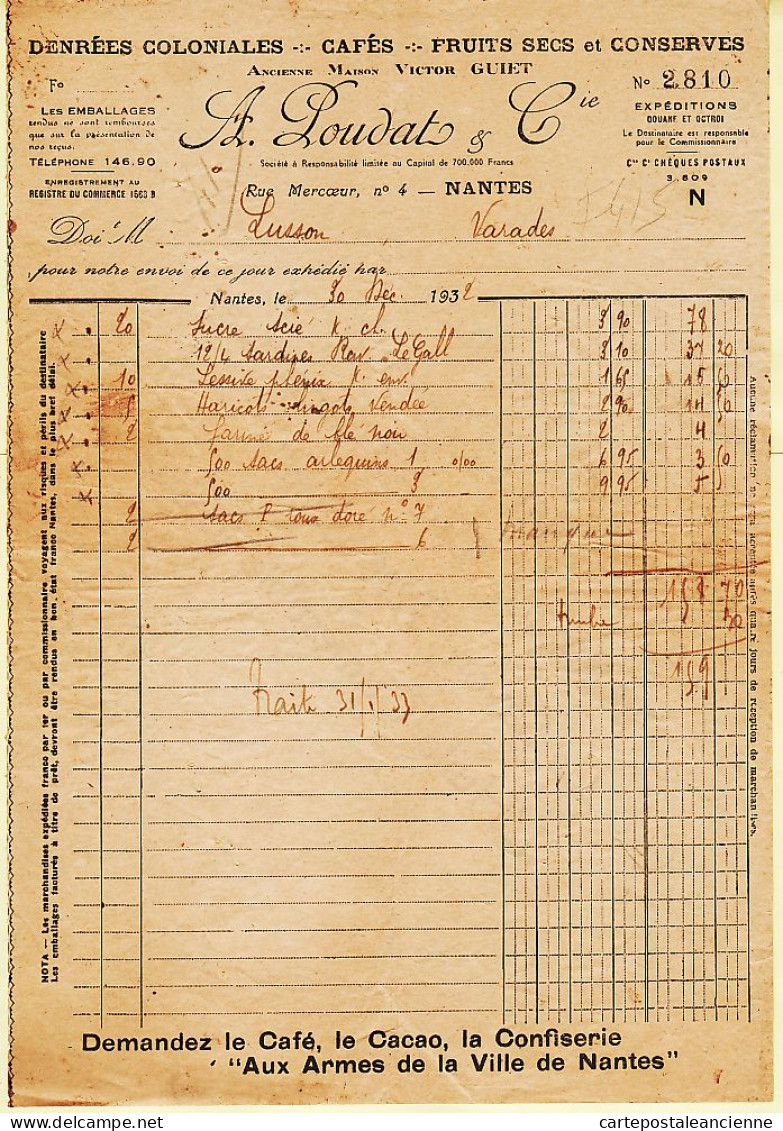 DENRÉES COLONIALES -:- CAFÉS -:- FRUITS SECS et CONSERVES
ANCIENNE MAISON VICTOR GUIET
Fo
No 2.810
A. Poudat & Cie
LES EMBALLAGES
rendus ne sont remboursés
que sur la présentation de
nos reçus.
TÉLÉPHONE 146.90
ENREGISTREMENT AU
REGISTRE DU COMMERCE 1563 B
EXPÉDITIONS
DOUANE ET OCTROI
Le Destinataire est responsable
pour le Commissionnaire
Cte Ct CHÈQUES POSTAUX
3.809
N
Société à Responsabilité limitée au Capital de 700.000 Francs
Rue Mercœur, no 4 — NANTES
F415
Doit M Lusson Varades
pour notre envoi de ce jour expédié par
Nantes, le 30 Déc. 1932
x 20 Sucre scié K ch. 3 90 78
x 12/4 Sardines Rav. Le Gall 3 10 37 20
x 10 Lessive phénix K. env. 1 65 16 50
x 5 Haricots lingots Vendée 2 90 14 50
x 2 farine de blé noir 2 4
x 500 sacs arlequins 1 0/00 6 95 3 50
x 500 3 9 95 5
2 sacs P. tous doré no 7
2 6 } manque
158 70
timbre 30
159
Traite 31/1/33
NOTA — Les marchandises expédiées franco par fer ou par commissionnaire voyagent aux risques et périls du destinataire
Les emballages facturés à titre de prêt, devront être rendus en bon état franco Nantes, dans le plus bref délai.
Aucune réclamation ne sera acceptée après quatre jours de réception de marchandises
Demandez le Café, le Cacao, la Confiserie
"Aux Armes de la Ville de Nantes"
cartepostaleancienne